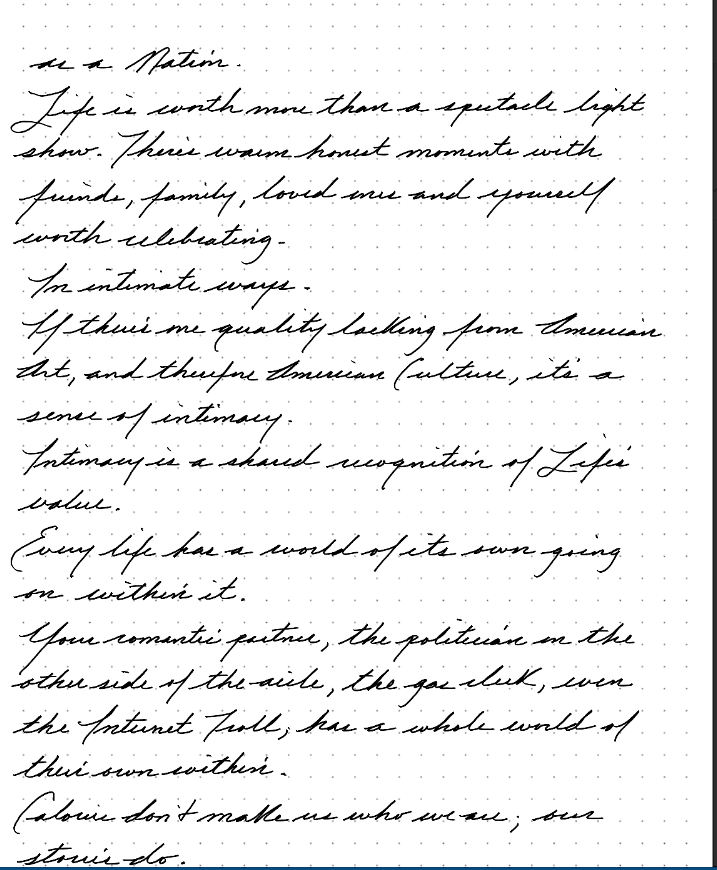 as a Nation.
Life is worth more than a spectacle light
show. There's warm honest moments with
friends, family, loved ones and yourself
worth celebrating.
In intimate ways.
If there's one quality lacking from American
Art, and therefore American Culture, it's a
sense of intimacy.
Intimacy is a shared recognition of Life's
value.
Every life has a world of its own going
on within it.
Your romantic partner, the politician on the
other side of the aisle, the gas clerk, even
the Internet Troll; has a whole world of
their own within.
Calories don't make us who we are; our
stories do.